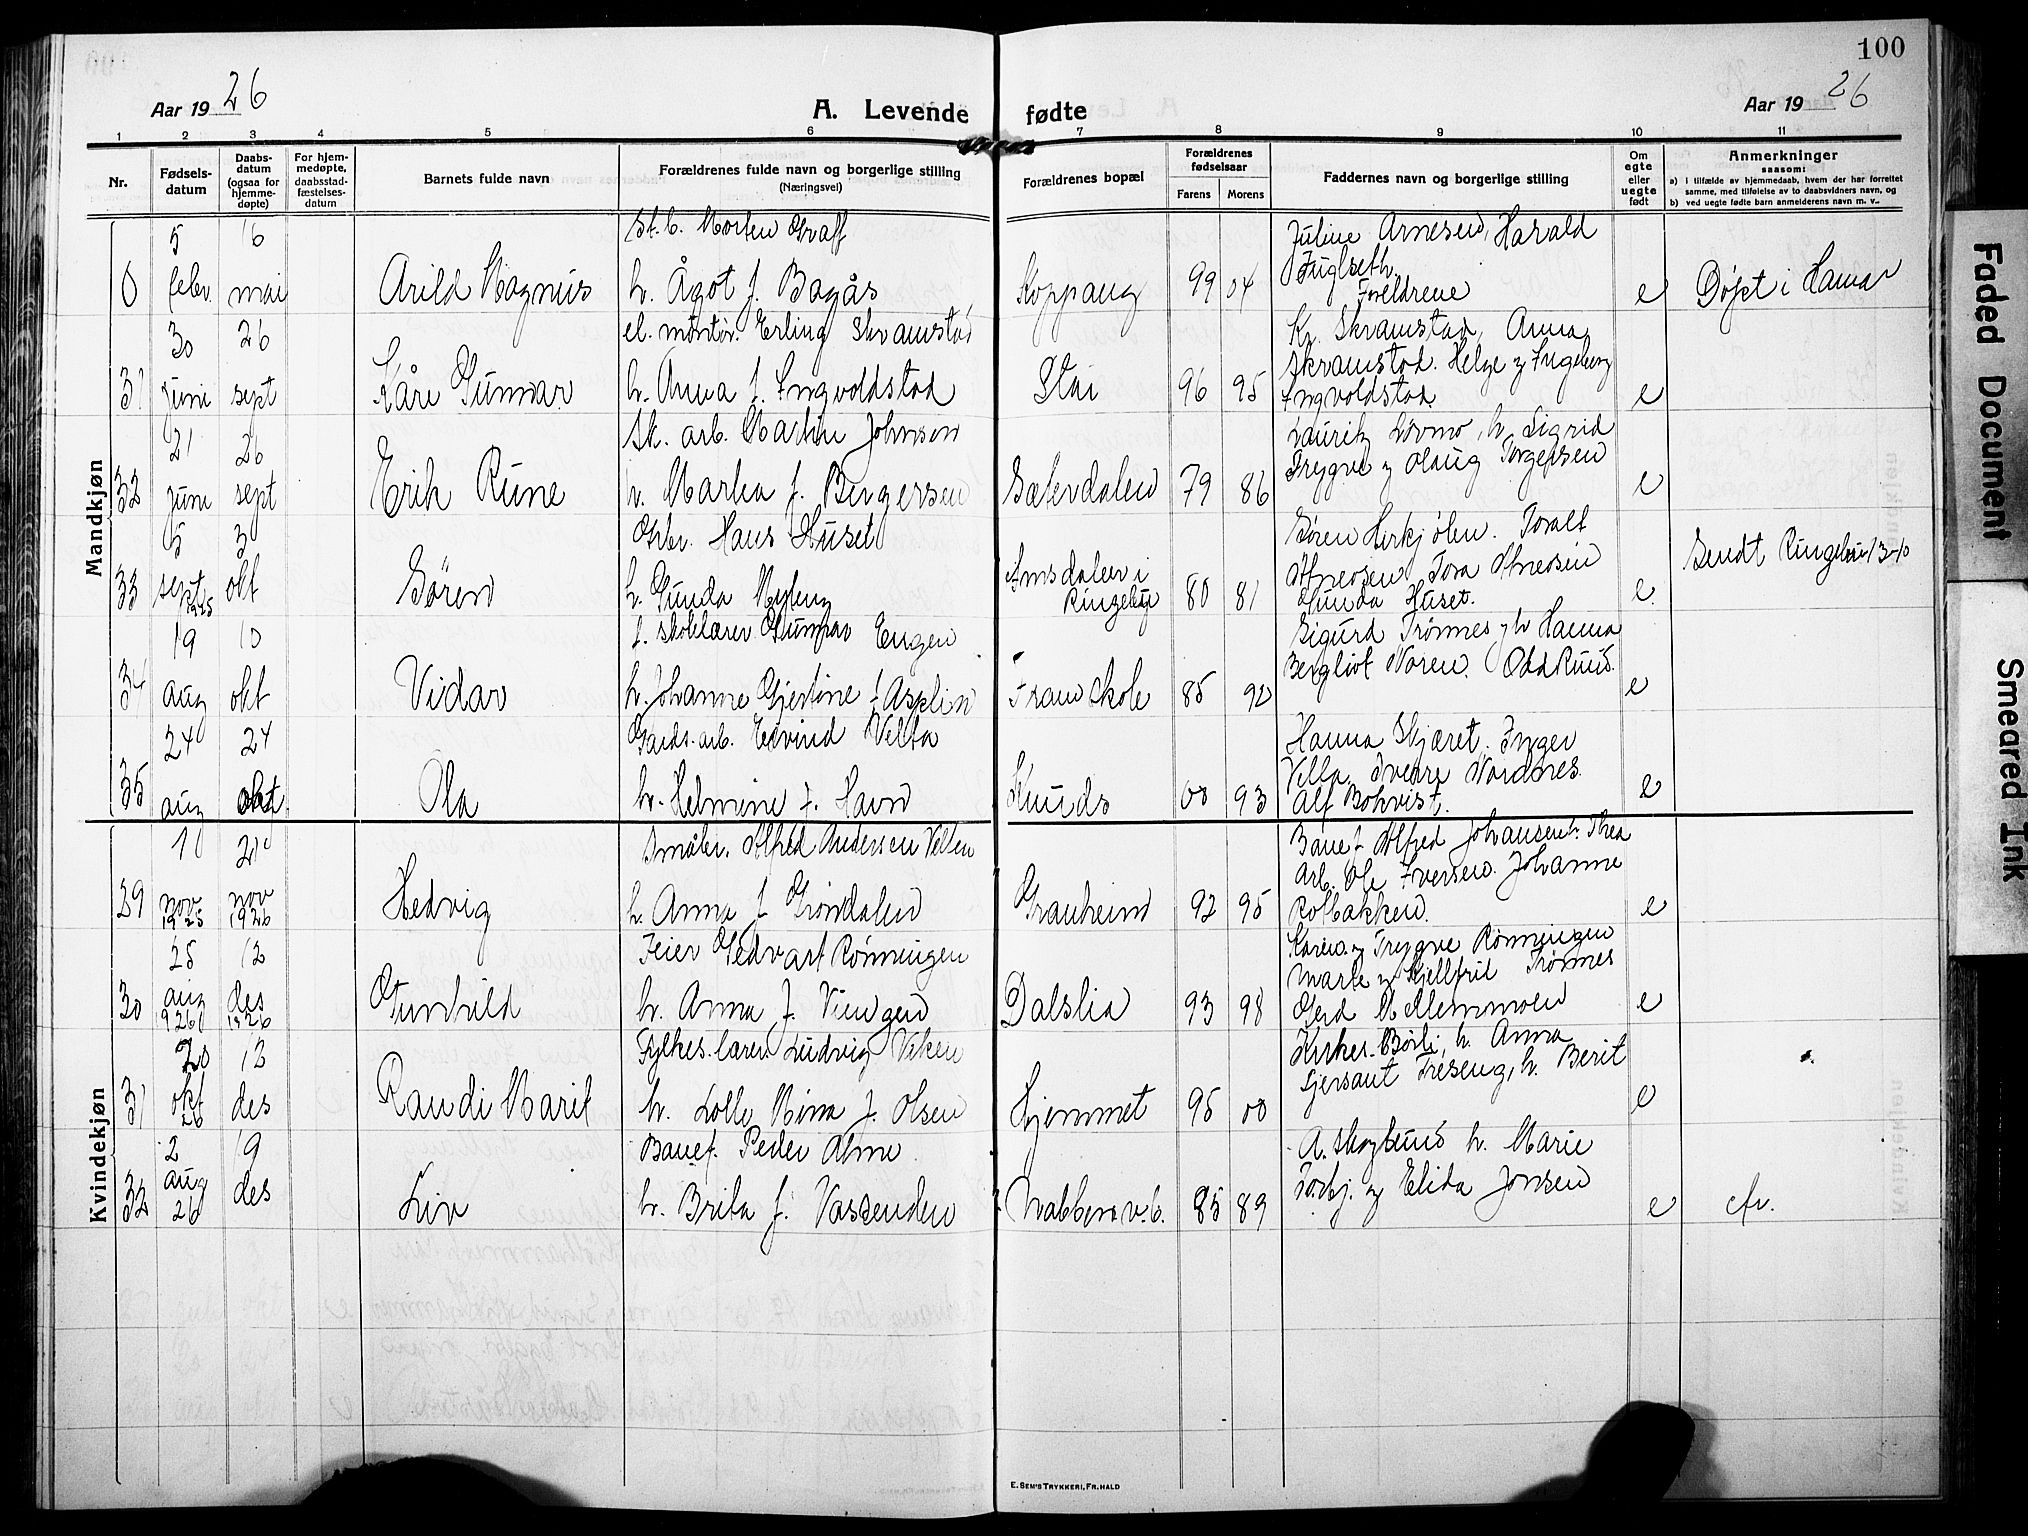 100
Aar 1926
A. Levende fødte
Aar 1926
1 2 3 4 5 6 7 8 9 10 11
Nr.
Fødsels-
datum
Daabs-
datum
(ogsaa for
hjemme-
døpte)
For hjem-
medøpte,
daabsstad-
fæstelses-
datum
Barnets fulde navn
Forældrenes fulde navn og borgerlige stilling
(Næringsvei)
Forældrenes bopæl
Forældrenes
fødselsaar
Farens Morens
Faddernes navn og borgerlige stilling
Om
egte
eller
uegte
født
Anmerkninger
saasom:
a) i tilfælde av hjemmedaab, hvem der har forrettet
samme, med tilføielse av to daabsvidners navn, og
b) ved uegte fødte barn anmelderens navn m. v.
Mandkjøn
0 5 febr. 16 mai Arild Magnus
St.b. Morten Graff
h. Ågot f. Bagås
Koppang 99 04
Juline Arnesen, Harald
Fuglseth.
Foreldrene
e Døpt i Hamar
31 30 juni 26 sept Kåre Gunnar
el. montør. Erling Skramstad
h. Anna f. Ingvoldstad
Stai 96 95
Kr. Skramstad, Anna
Skramstad. Helge og Ingeborg
Ingvoldstad
e
32 21 juni 26 sept Erik Rune
Sk. arb. Martin Johnsen
h. Martha f. Birgersen
Sætervdalen 79 86
Lauritz Lovmo, h. Sigrid
Trygve og Olaug Torgersen
e
33 5 sept 1925 3 okt Søren
Gbr. Hans Huset
h. Gunda Myteng
Imsdalen i
Ringebu 80 81
Søren Hirkjølen. Toralf
Atneosen Tora Atneosen
Gunda Huset.
e. Sendt Ringebu 13-10
34 19 aug 10 okt Vidar
f. skolelærer Gunnar Engen
h. Johanne Gjertine f. Asplin
Fram skole 85 92
Sigurd Trønnes og h Hanna
Bergliot Noren. Odd Ruud.
e
35 24 aug 24 okt. Ola
Gards. arb. Eivind Velta
h. Helmine f. Havn
Kruds 00 93
Hanna Skjæret. Inger
Velta Sverre Nordnes.
Alf Bohvist.
e
Kvindekjøn
29 1 nov 1925 21 nov 1926 Hedvig
Småbr. Alfred Andersen Velten
h. Anna f Grøndalen
Granheim 92 95
Banef. Alfred Johansen h. Thea
Arb. Ole Iversen. Johanne
Rolbakken.
e
30 25 aug 1926 12 des 1926 Gunhild
Feier Hedvart Rønningen
h. Anna f. Viengen
Dalslia 93 98
Karen og Trygve Rønningen
Marte og Kjellfrid Trønnes
Gerd Mellemmoen
e
31 20 okt 26 12 des Randi Marit
Fylkes. lærer Ludvig Viken
h. Lolle Mina f. Olsen
Hjemmet 95 00
Kirkes. Børli, h. Anna
Sjersant Treseng, h. Berit
e
32 2 aug 26 19 des Liv
Banef. Peder Alme
h. Brita f. Vassenden
Nabbern v.b. 85 89
A. Skoglund h. Marie
Torbj. og Elida Jonsen
e
E. Sem's Trykkeri, Fr.hald
Faded Document
Smeared Ink